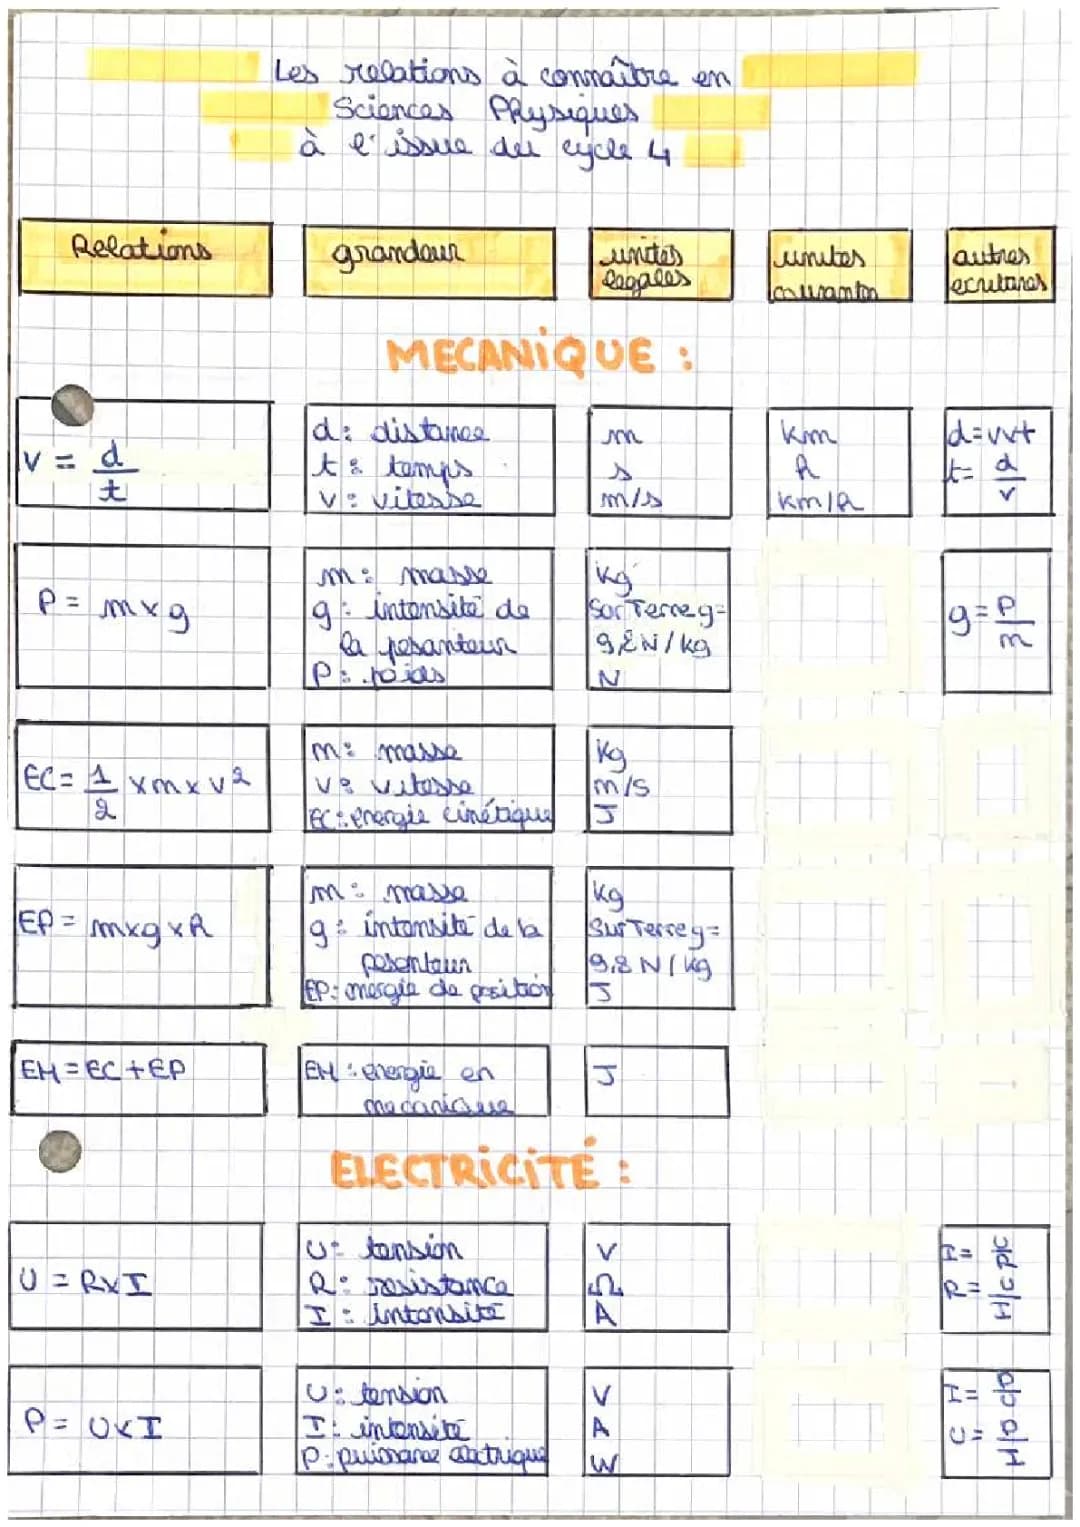 Les relations à connaître en
Sciences Physiques
à l'issue du cycle 4
Relations
grandeur
unités
legales
unites
courantes
autres
ecritures
MECANIQUE :
V = d
t
d: distance
t: temps
v: vitesse
m
s
m/s
km
h
km/h
d=vxt
t= d
v
P = m x g
m: masse
g: intensité de
la pesanteur
P: poids
kg
Sur Terre g=
9,8 N/kg
N
g = P
m
EC = 1 x m x v²
2
m: masse
v: vitesse
EC: energie cinétique
kg
m/s
J
EP = m x g x h
m: masse
g: intensité de la
pesanteur
EP: energie de position
kg
Sur Terre g=
9,8 N/kg
J
EM = EC + EP
EM: energie en
mecanique
J
ELECTRICITÉ :
U = R x I
U: tension
R: resistance
I: intensité
V
Ω
A
I = U
R
R = U
I
P = U x I
U: tension
I: intensité
P: puissance electrique
V
A
W
I = P
U
U = P
I